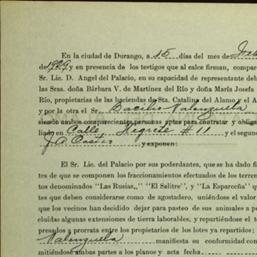 En la ciudad de Durango, a 15 días del mes de
1929 y en presencia de los testigos que al calce firman, compar
Sr. Lic. D. Angel del Palacio, en su capacidad de representante de
las Sras. doña Bárbara V. de Martínez del Río y doña María Josefa
Río, propietarias de las haciendas de Sta. Catalina del Alamo y el A
y por la otra el Sr. Basilio Valenzuela
siendo ambos comparecientes personas aptas para contratar y obliga
liado en Calle Negrete #11 y el segun
J. A. Castro y exponen:
El Sr. Lic. del Palacio por sus poderdantes, que se ha dado fi
tes de que se componen los fraccionamientos efectuados de los terren
tos denominados "Las Rusias," "El Salitre", y "La Esparceña" qu
tes que deben considerarse como de agostadero, uniéndose el valor
que los vecinos han decidido dejar para pasteo de sus animales a pe
cluidas algunas extensiones de tierra laborales, y repartiéndose el t
presados a prorrata entre los propietarios de los lotes ya repartidos;
Valenzuela manifiesta su conformidad con
mitiéndose ambas partes a los planos y acta fecha